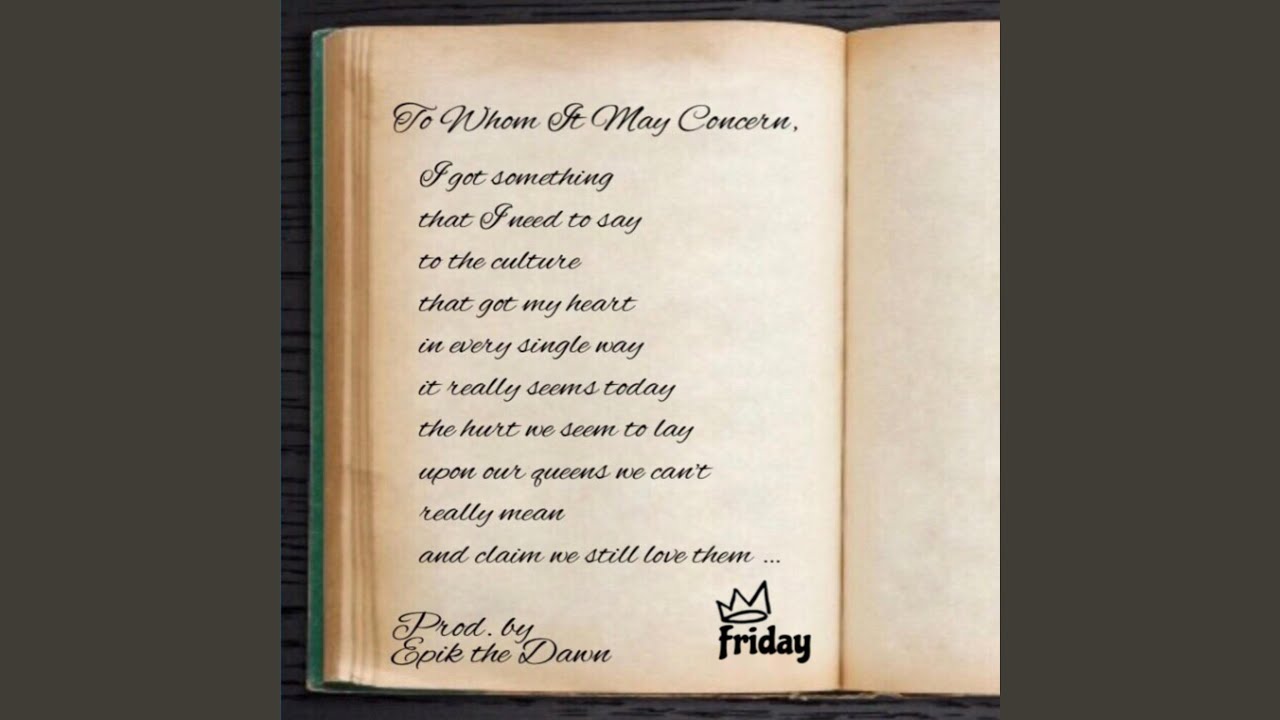 To Whom It May Concern,
I got something
that I need to say
to the culture
that got my heart
in every single way
it really seems today
the hurt we seem to lay
upon our queens we can't
really mean
and claim we still love them ...
Prod. by
Epik the Dawn
friday